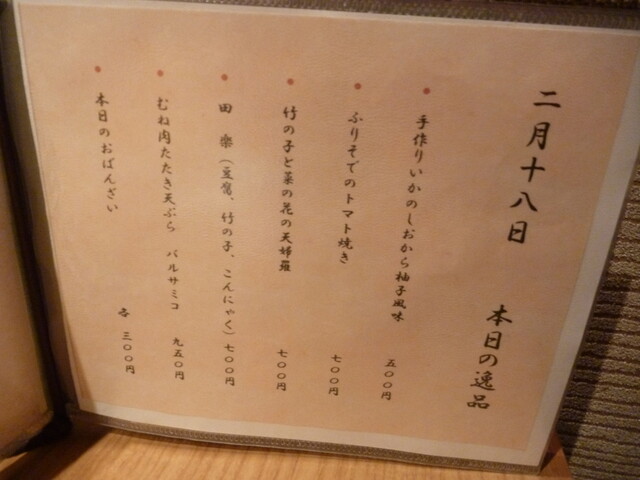 二月十八日 本日の逸品
手作りいかのしおから柚子風味 五〇〇円
ふりそでのトマト焼き 七〇〇円
竹の子と菜の花の天婦羅 七〇〇円
田楽（豆腐、竹の子、こんにゃく）七〇〇円
むね肉たたき天ぷら バルサミコ 九五〇円
本日のおばんざい 各 三〇〇円